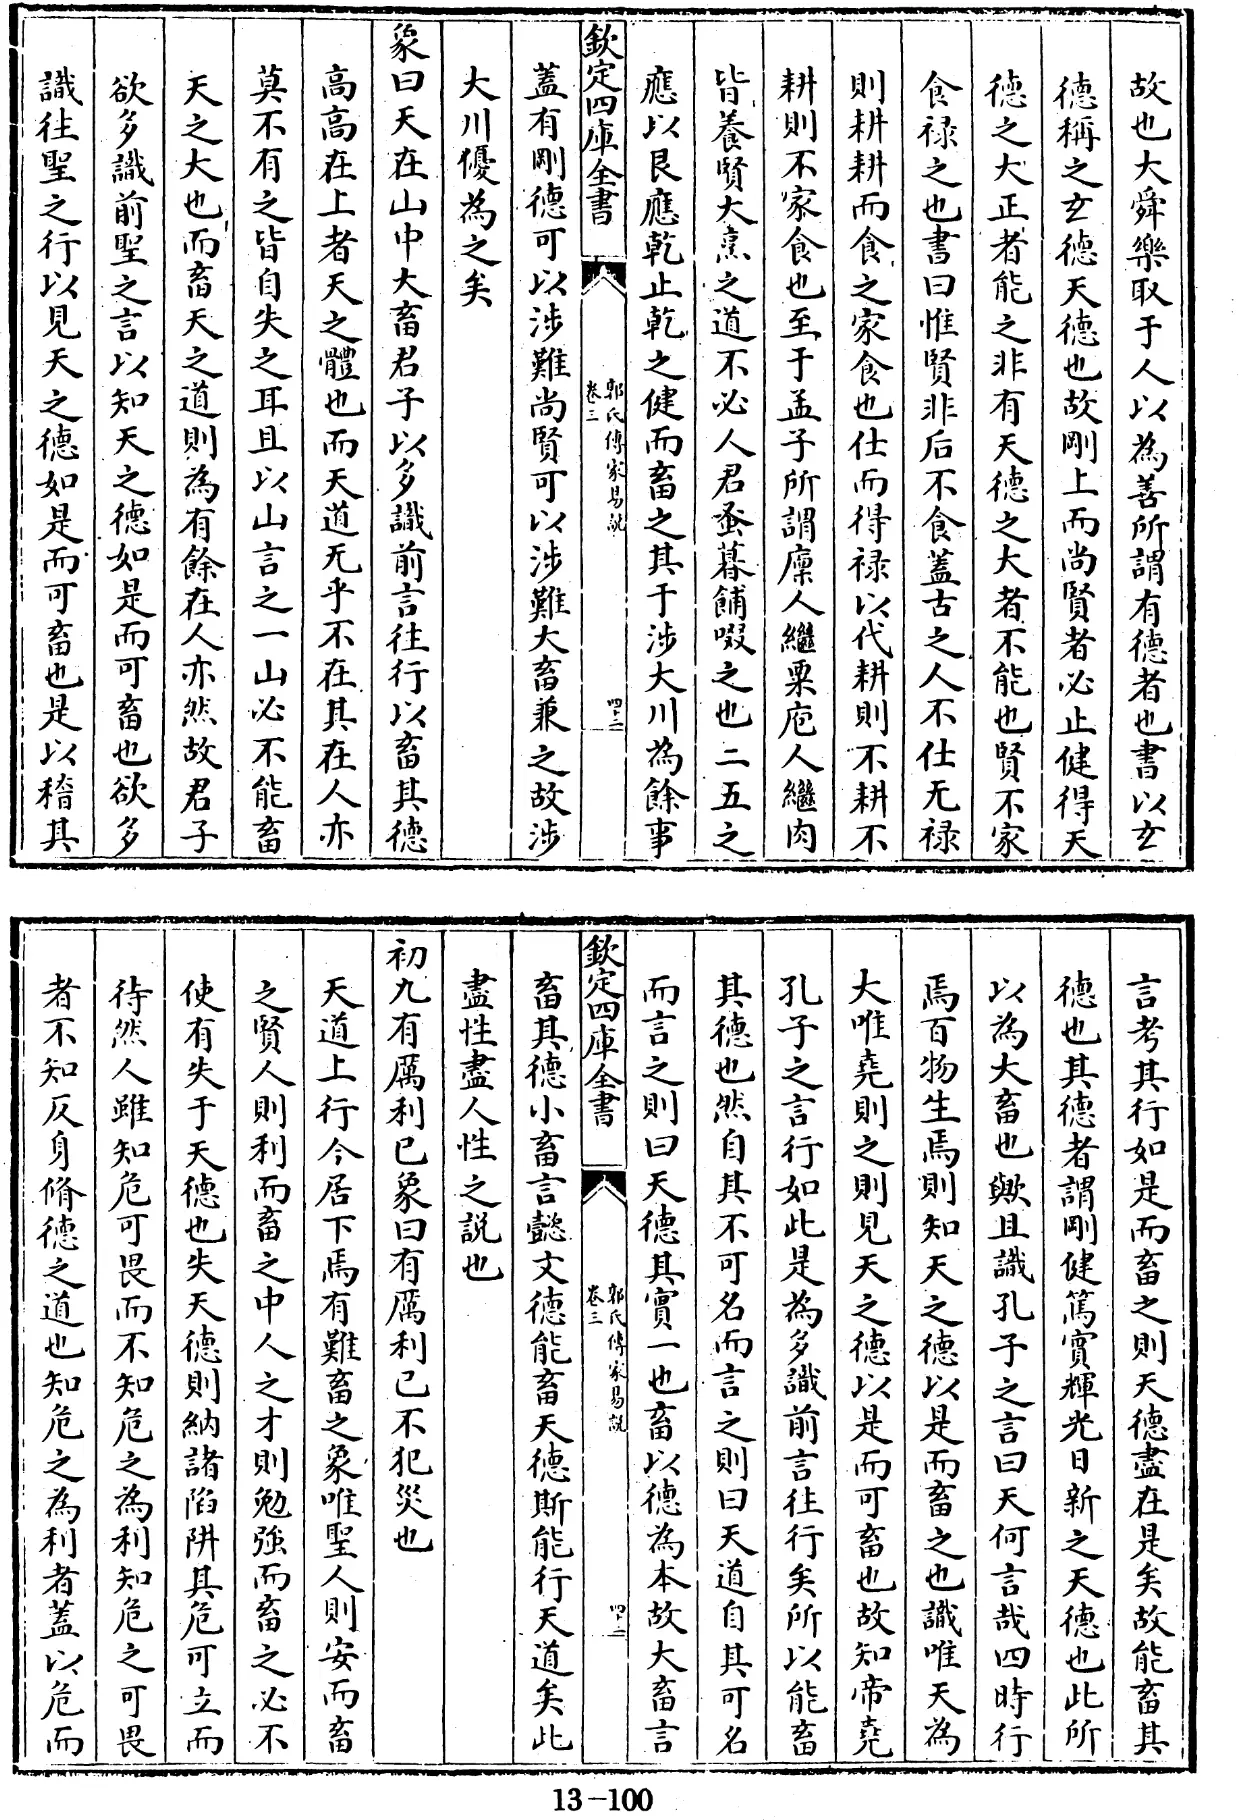 故也大舜樂取于人以為善所謂有德者也書以玄
德稱之玄德天德也故剛上而尚賢者必止健得天
德之大正者能之非有天德之大者不能也賢不家
食祿之也書曰惟賢非后不食蓋古之人不仕无祿
則耕耕而食之家食也仕而得祿以代耕則不耕不
耕則不家食也至于孟子所謂廩人繼粟庖人繼肉
皆養賢大烹之道不必人君蚤暮餔啜之也二五之
應以艮應乾止乾之健而畜之其于涉大川為餘事
欽定四庫全書
郭氏傳家易說
卷三
四十二
蓋有剛德可以涉難尚賢可以涉難大畜兼之故涉
大川優為之矣
象曰天在山中大畜君子以多識前言往行以畜其德
高高在上者天之體也而天道无乎不在其在人亦
莫不有之皆自失之耳且以山言之一山必不能畜
天之大也而畜天之道則為有餘在人亦然故君子
欲多識前聖之言以知天之德如是而可畜也欲多
識往聖之行以見天之德如是而可畜也是以稽其
言考其行如是而畜之則天德盡在是矣故能畜其
德也其德者謂剛健篤實輝光日新之天德也此所
以為大畜也歟且識孔子之言曰天何言哉四時行
焉百物生焉則知天之德以是而畜之也識唯天為
大唯堯則之則見天之德以是而可畜也故知帝堯
孔子之言行如此是為多識前言往行矣所以能畜
其德也然自其不可名而言之則曰天道自其可名
而言之則曰天德其實一也畜以德為本故大畜言
欽定四庫全書
郭氏傳家易說
卷三
四十二
畜其德小畜言懿文德能畜天德斯能行天道矣此
盡性盡人性之説也
初九有厲利已象曰有厲利已不犯災也
天道上行今居下焉有難畜之象唯聖人則安而畜
之賢人則利而畜之中人之才則勉強而畜之必不
使有失于天德也失天德則納諸陷阱其危可立而
待然人雖知危可畏而不知危之為利知危之可畏
者不知反身脩德之道也知危之為利者蓋以危而
13-100